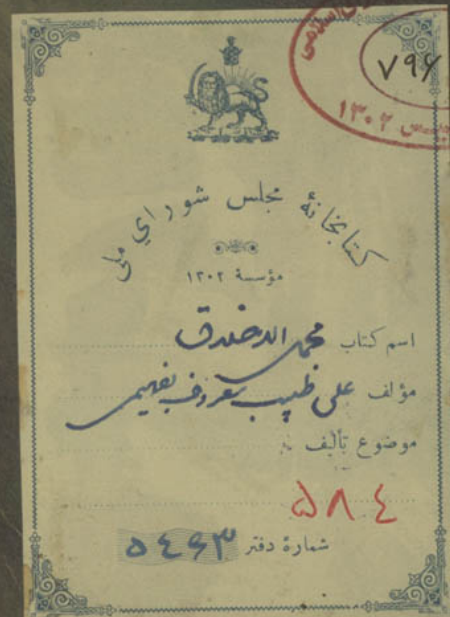 اسلامی
۷۹۶
۱۳۰۲
کتابخانهٔ مجلس شورای ملی
مؤسسهٔ ۱۳۰۲
اسم کتاب
مؤلف علی طبیب معروف بفهیمی
موضوع تألیف
۵۸٤
شمارهٔ دفتر ۵٤۶۳